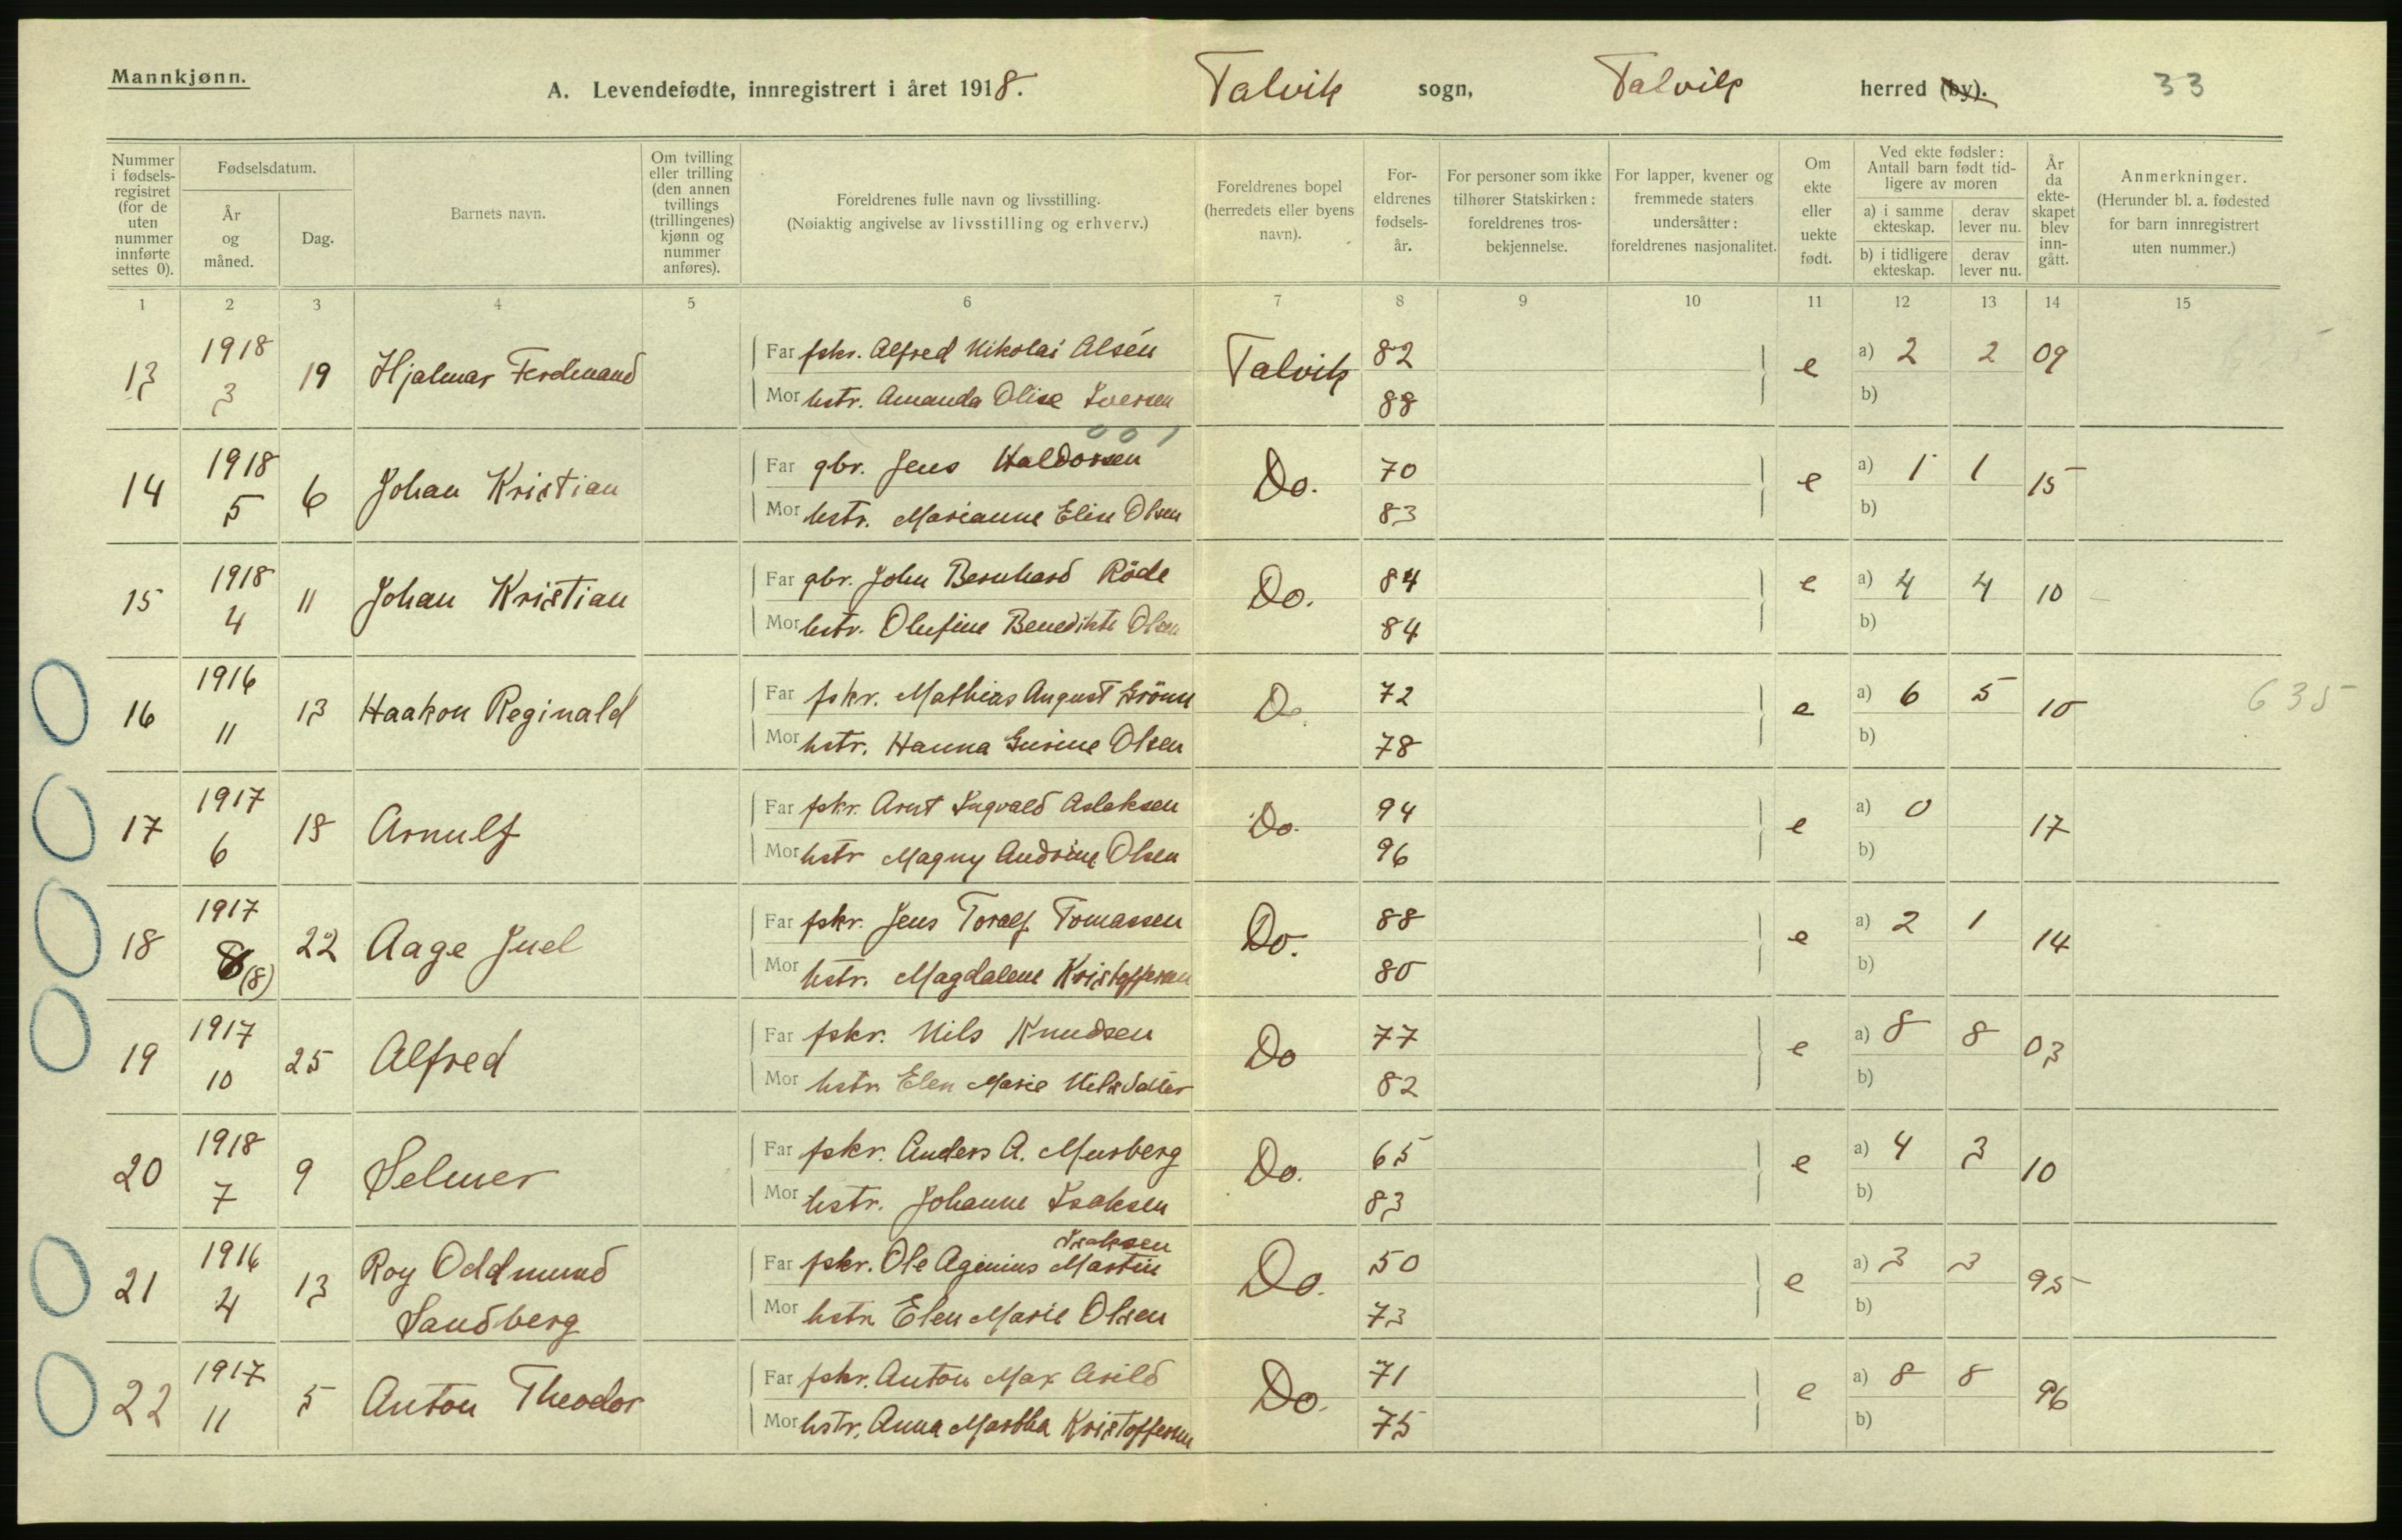 Mannkjønn.
A. Levendefødte, innregistrert i året 1918.
Talvik sogn, Talvik herred (by). 33
Nummer i fødsels-registret (for de uten nummer innførte settes 0).
Fødselsdatum.
År og måned.
Dag.
Barnets navn.
Om tvilling eller trilling (den annen tvillings (trillingenes) kjønn og nummer anføres).
Foreldrenes fulle navn og livsstilling.
(Nøiaktig angivelse av livsstilling og erhverv.)
Foreldrenes bopel (herredets eller byens navn).
For-eldrenes fødsels-år.
For personer som ikke tilhører Statskirken: foreldrenes tros-bekjennelse.
For lapper, kvener og fremmede staters undersåtter: foreldrenes nasjonalitet.
Om ekte eller uekte født.
Ved ekte fødsler: Antall barn født tid-ligere av moren
a) i samme ekteskap. derav lever nu.
b) i tidligere ekteskap. derav lever nu.
År da ekte-skapet blev inn-gått.
Anmerkninger.
(Herunder bl. a. fødested for barn innregistrert uten nummer.)
1 2 3 4 5 6 7 8 9 10 11 12 13 14 15
13 1918 3 19 Hjalmar Ferdinand
Far fskr. Alfred Nikolai Alsén Talvik 82 e a) 2 2 09
Mor hstr. Amanda Olise Iversen 88 b)
14 1918 5 6 Johan Kristian
Far gbr. Jens Haldorsen Do. 70 e a) 1 1 15
Mor hstr. Marianne Elise Olsen 83 b)
15 1918 4 11 Johan Kristian
Far gbr. John Bernhard Röde Do. 84 e a) 4 4 10
Mor hstr. Olufine Benedikte Olsen 84 b)
16 1916 11 13 Haakon Reginald
Far fskr. Mathias August Grönn Do. 72 e a) 6 5 10 635
Mor hstr. Hanna Gurine Olsen 78 b)
17 1917 6 18 Arnulf
Far fskr. Arnt Ingvald Aslaksen Do. 94 e a) 0 17
Mor hstr Magny Andrine Olsen 96 b)
18 1917 8 (8) 22 Aage Juel
Far fskr. Jens Toralf Tomassen Do. 88 e a) 2 1 14
Mor hstr. Magdalene Kristoffersen 80 b)
19 1917 10 25 Alfred
Far fskr. Nils Knudsen Do 77 e a) 8 8 03
Mor hstr. Elen Marie Nilsdatter 82 b)
20 1918 7 9 Selmer
Far fskr. Anders A. Murberg Do. 65 e a) 4 3 10
Mor hstr. Johanne Isaksen 83 b)
21 1916 4 13 Roy Oddmund Sandberg
Isaksen
Far fskr. Ole Agenius Martin Do. 50 e a) 3 3 95
Mor hstr. Elen Marie Olsen 73 b)
22 1917 11 5 Anton Theodor
Far fskr. Anton Max Arild Do. 71 e a) 8 8 96
Mor hstr. Anna Martha Kristoffersen 75 b)